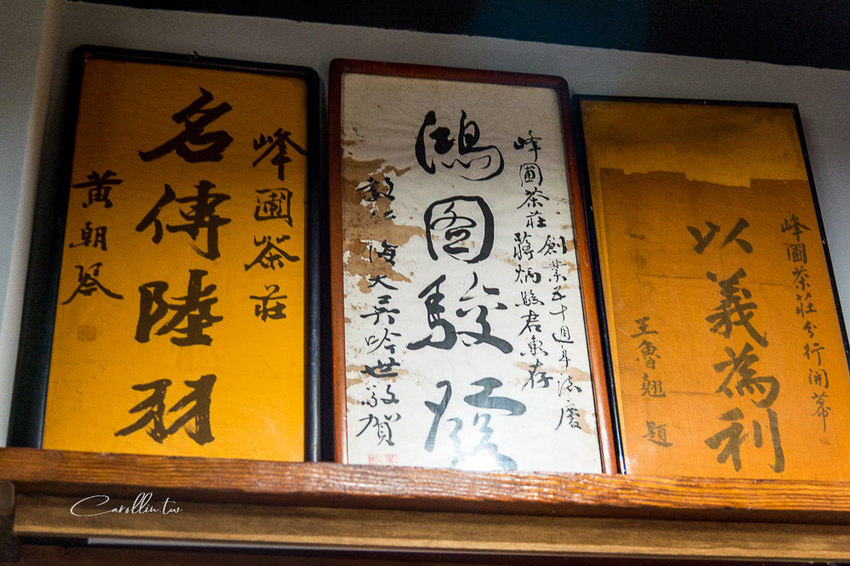 峰圃茶莊
名傳陸羽
黃朝琴
峰圃茶莊創業五十週年誌慶
蔣炳照君惠存
鴻图駿發
吳吟世敬賀
峰圃茶莊分行開幕
以義為利
王魯翹題
Carollin.tw